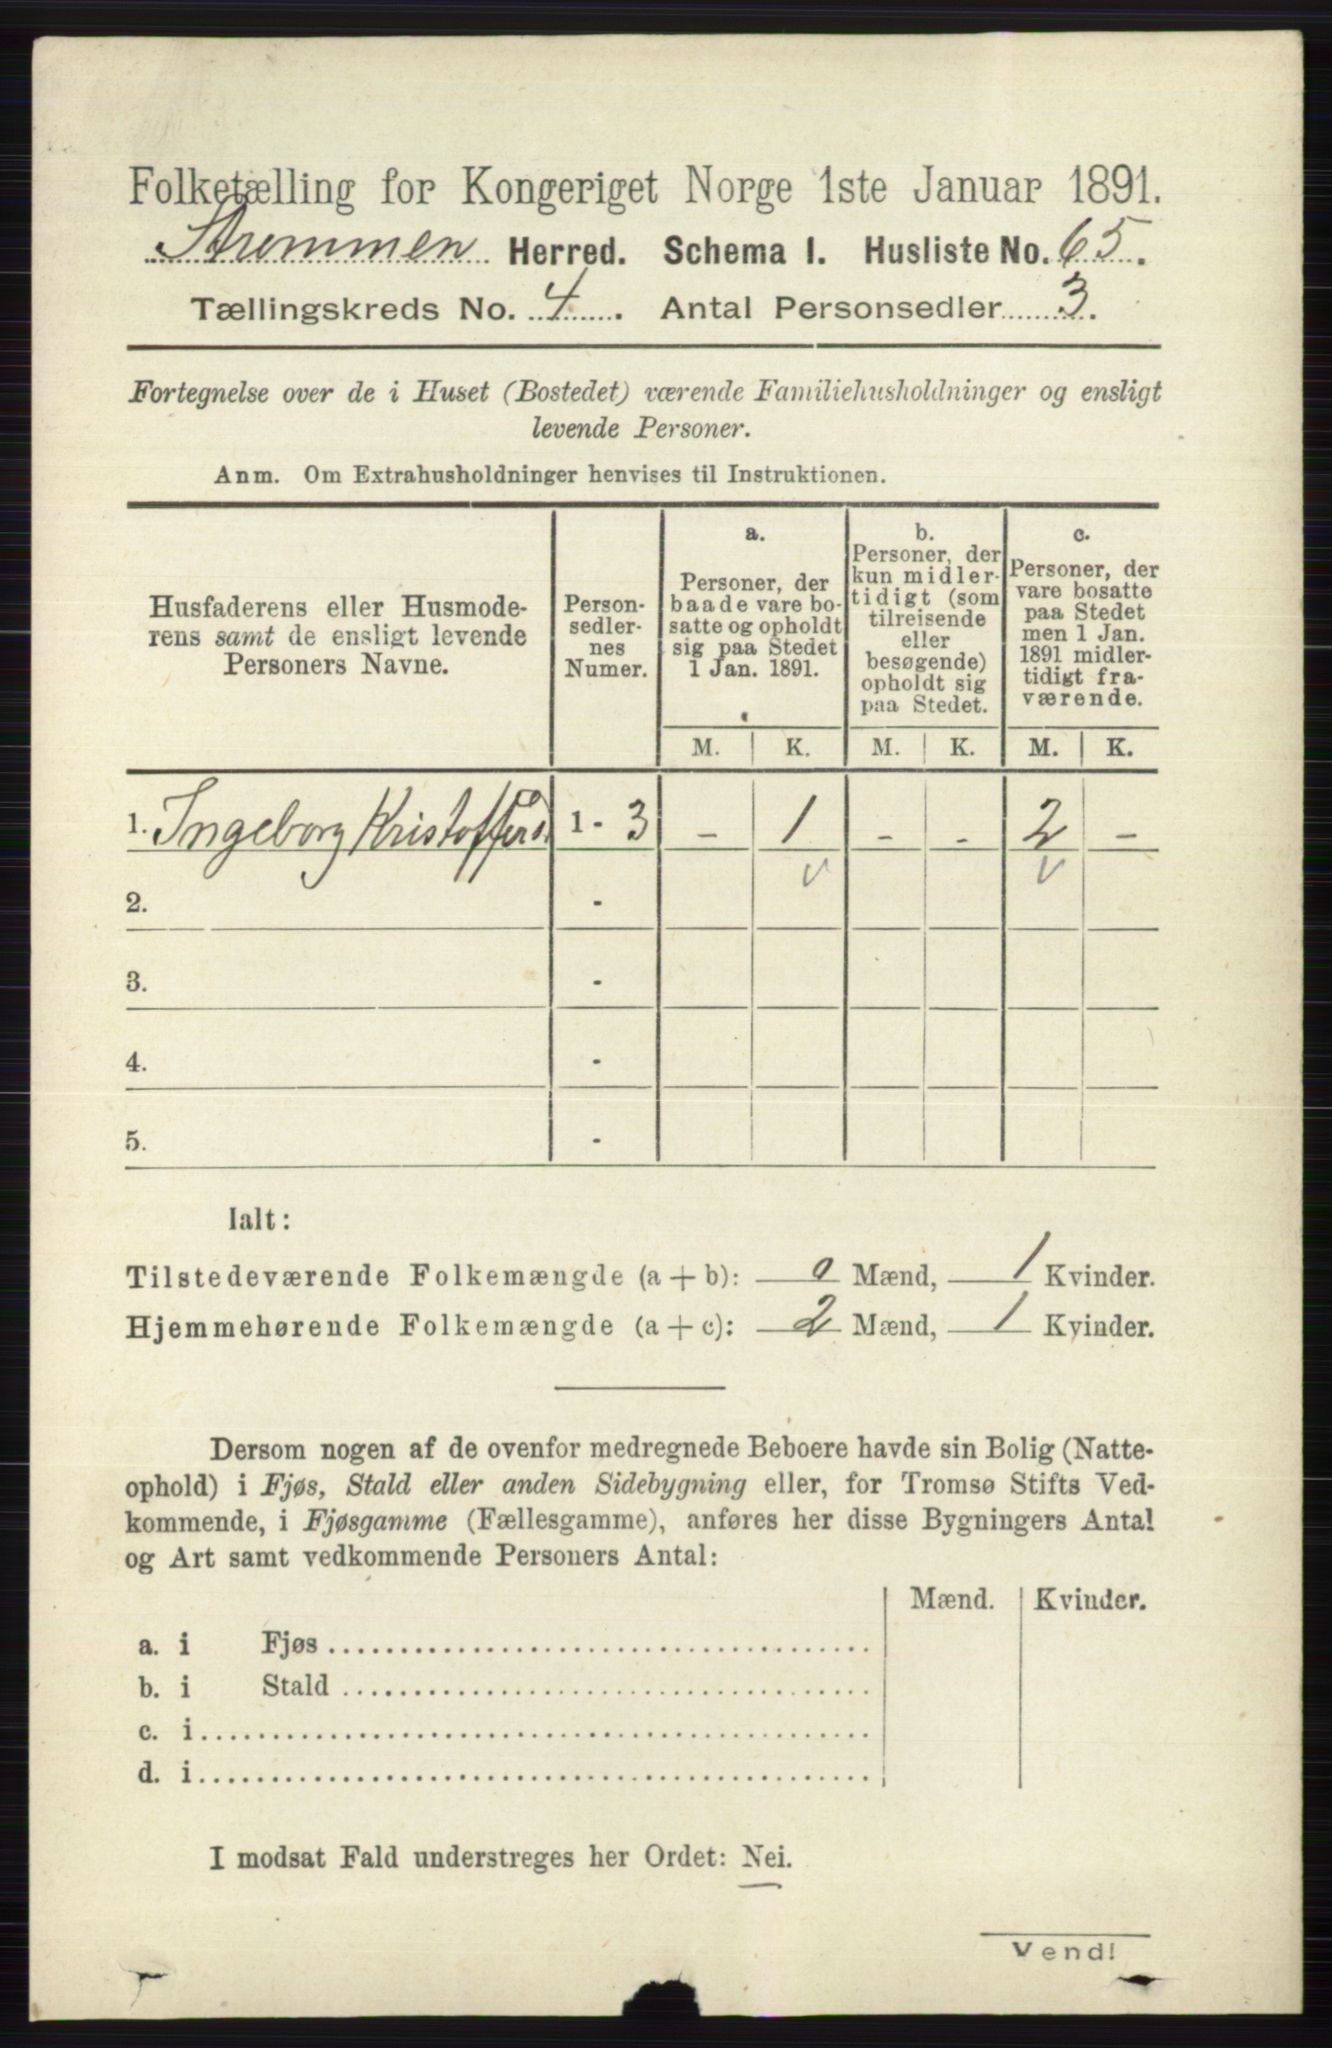 Folketælling for Kongeriget Norge 1ste Januar 1891.
Strømmen Herred. Schema I. Husliste No. 65.
Tællingskreds No. 4. Antal Personsedler 3.
Fortegnelse over de i Huset (Bostedet) værende Familiehusholdninger og ensligt
levende Personer.
Anm. Om Extrahusholdninger henvises til Instruktionen.
Husfaderens eller Husmode-
rens samt de ensligt levende
Personers Navne.
Person-
sedler-
nes
Numer.
a.
Personer, der
baade vare bo-
satte og opholdt
sig paa Stedet
1 Jan. 1891.
b.
Personer, der
kun midler-
tidigt (som
tilreisende
eller
besøgende)
opholdt sig
paa Stedet.
c.
Personer, der
vare bosatte
paa Stedet
men 1 Jan.
1891 midler-
tidigt fra-
værende.
M. K. M. K. M. K.
1. Ingeborg Kristoffersd. 1 - 3 - 1 - - 2 -
v v
2. -
3. -
4. -
5. -
Ialt:
Tilstedeværende Folkemængde (a + b): 0 Mænd, 1 Kvinder.
Hjemmehørende Folkemængde (a + c): 2 Mænd, 1 Kvinder.
Dersom nogen af de ovenfor medregnede Beboere havde sin Bolig (Natte-
ophold) i Fjøs, Stald eller anden Sidebygning eller, for Tromsø Stifts Ved-
kommende, i Fjøsgamme (Fællesgamme), anføres her disse Bygningers Antal
og Art samt vedkommende Personers Antal:
Mænd. Kvinder.
a. i Fjøs
b. i Stald
c. i
d. i
I modsat Fald understreges her Ordet: Nei.
Vend!